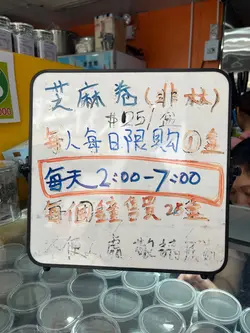 芝麻卷(菲林)
$25/盒
每人每日限購①盒
每天2:00-7:00
每個鐘賣2盒
不便之處 敬請原諒